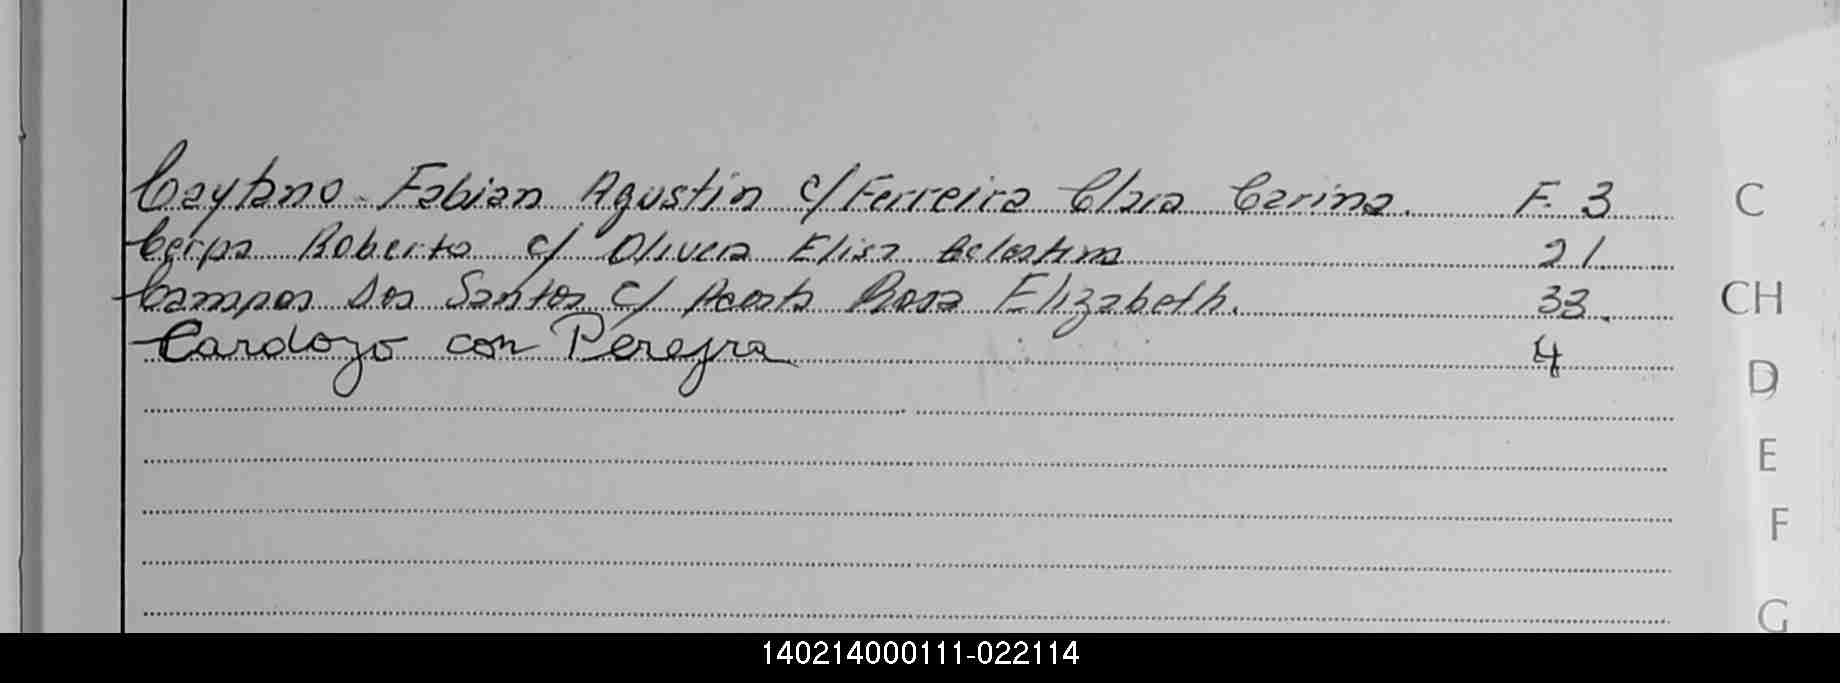 Caytano Fabian Agustin c/ Ferreira Clara Carina. F. 3
Cerpa Roberto c/ Olivera Elisa Celestina 21.
Campos Dos Santos c/ Acosta Rosa Elizabeth. 33.
Cardozo con Pereyra 4
C
CH
D
E
F
G
140214000111-022114